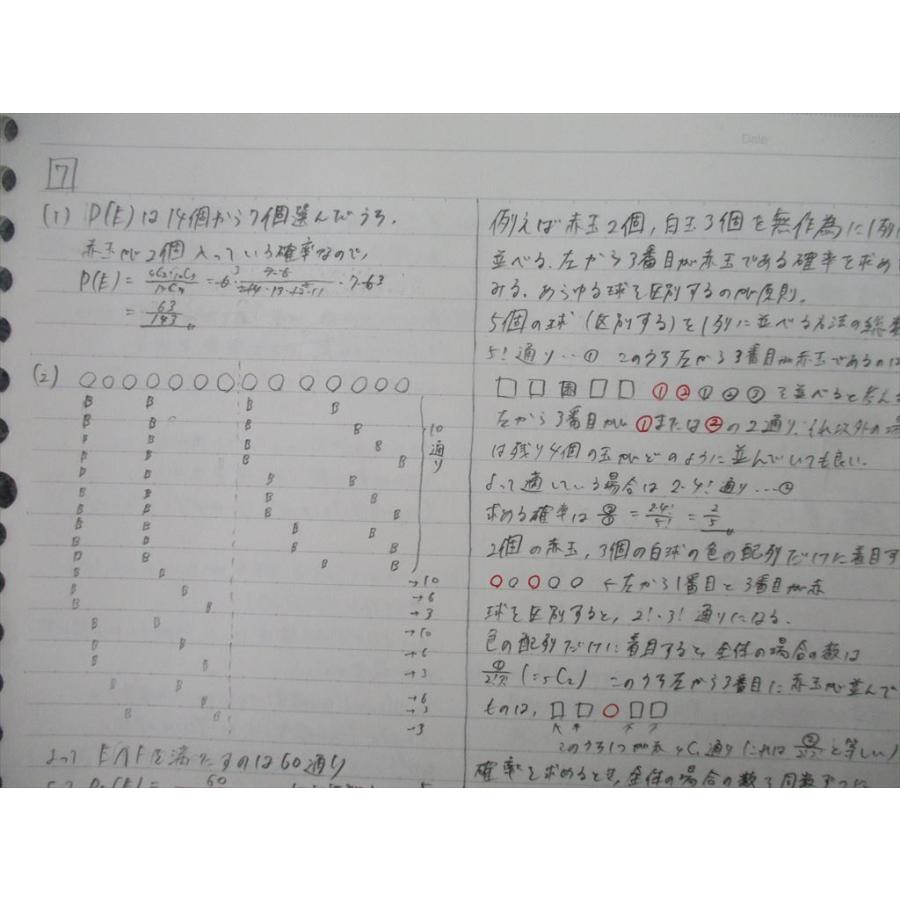 Date
7
(1) P(E)は14個から7個選んだうち、
赤玉が2個入っている確率なので、
P(E) =
= 63/143
(2) ○○○○○○○○○○○○○○
B B B B
B B B
B B B B
B B B B
B B B B
B B B B
B B B B
B B B B
B B B B
B B B B
10通り
B B →10
B B →6
B B →3
B B →10
B B →6
B B →3
B B →6
B B →3
B B →3
よって E∩Fを満たすのは60通り
60
例えば赤玉2個, 白玉3個を無作為に1列に
並べる. 左から3番目が赤玉である確率を求めて
みる. あらゆる球を区別するのが原則.
5個の球 (区別する) を1列に並べる方法の総数
5!通り…① このうち左から3番目が赤玉であるのは
□ □ □ □ □ ① ② ① ② ③ を並べると考え
左から3番目が①または②の2通り, それ以外の場
は残り4個の玉がどのように並んでいても良い.
よって適している場合は 2·4!通り…②
求める確率は ②/① = 2·4!/5! = 2/5
2個の赤玉, 3個の白球の色の配列だけに着目す
○○○○○ ←左から1番目と3番目が赤
球を区別すると, 2!·3!通りになる.
色の配列だけに着目すると全体の場合の数は
(=₅C₂) このうち左から3番目に赤玉が並んで
ものは, □ □ ○ □ □
このうち1つが赤 ₄C₁通り (これは と等しい)
確率を求めるとき, 全体の場合の数を同数ずつに